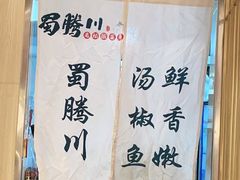 蜀腾川
蜀腾川
鲜香嫩
汤椒鱼